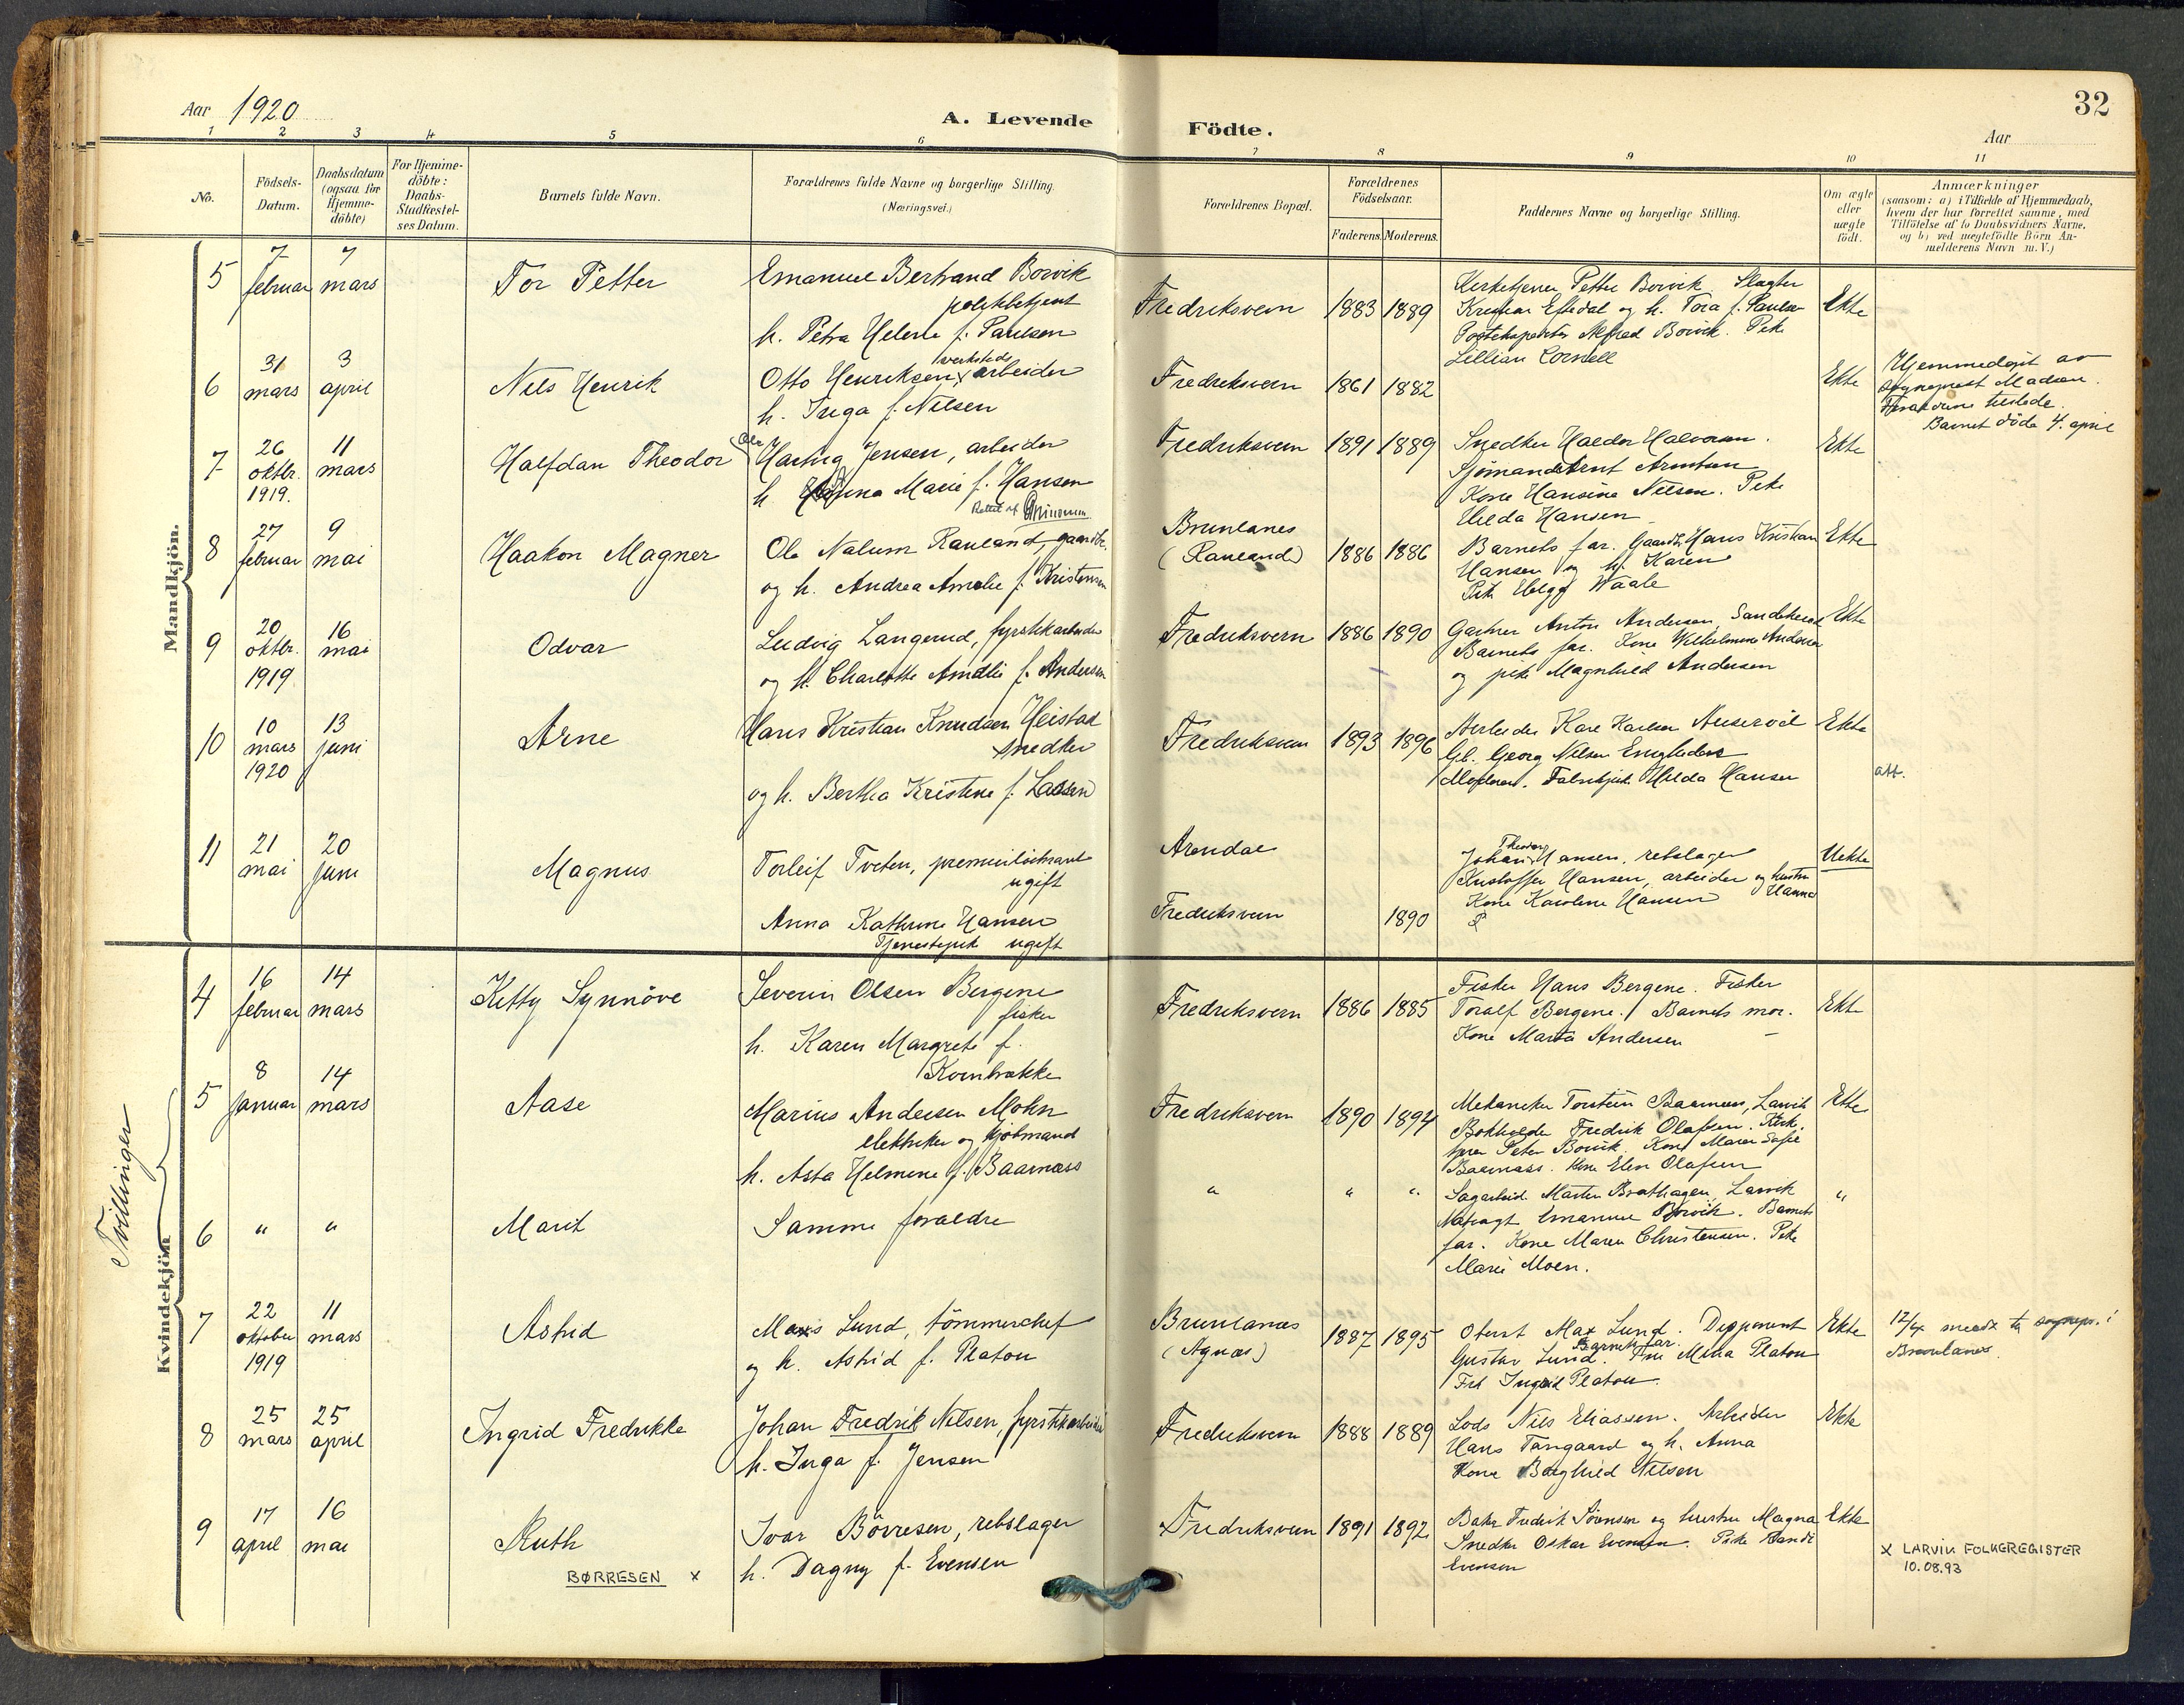 Aar 1920
A. Levende Födte.
32
Aar
1 2 3 4 5 6 7 8 9 10 11
No.
Födsels-Datum.
Daabsdatum (ogsaa for Hjemme-döbte)
For Hjemme-döbte: Daabs-Stadfæstel-ses Datum.
Barnets fulde Navn.
Forældrenes fulde Navne og borgerlige Stilling.
(Næringsvei.)
Forældrenes Bopæl.
Forældrenes Födselsaar.
Faderens. Moderens.
Faddernes Navne og borgerlige Stilling.
Om ægte eller uægte födt.
Anmærkninger
(saasom: a) i Tilfælde af Hjemmedaab,
hvem der har forrettet samme, med
Tilföielse af to Daabsvidners Navne.
og b) ved uægtefödte Börn An-
melderens Navn m. V.)
Mandkjön.
5 7 februar 7 mars Tor Petter
Emanuel Bertrand Borvik
politibetjent
h. Petra Helene f. Paulsen
Fredriksvern 1883 1889
Kirketjener Petter Borvik. Slagter
Kristian Eftedal og h. Tora f. Paulsen
Postekspeditör Alfred Borvik. Pike
Lillian Cornell
Ekte
6 31 mars 3 april Nils Henrik
Otto Henriksen, verkstedsarbeider
h. Inga f. Nilsen
Fredriksvern 1861 1882
Ekte
Hjemmedöpt av
sogneprest Madsen.
Foreldrene tilstede.
Barnet döde 4. april
7 26 oktbr. 1919. 11 mars Halfdan Theodor
Hartvig Jensen, arbeider
h. Anna Marie f. Hansen
Rettet af
Fredriksvern 1891 1889
Snedker Haldor Halvorsen.
Sjömand Arnt Arntsen
Kone Hansine Nilsen. Pike
Hilda Hansen
Ekte
8 27 februar 9 mai Haakon Magner
Ole Nalum Raueand, gaardbr.
og h. Andrea Amalie f. Kristensen
Brunlanes
(Raueand) 1886 1886
Barnets far. Gaardbr. Hans Kristian
Hansen og h. Karen
Pike Helga Waale
Ekte
9 20 oktbr. 1919 16 mai Odvar
Ludvig Langerud, fyrstikarbeider
og h. Charlotte Amalie f. Andersen
Fredriksvern 1886 1890
Gartner Anton Andersen, Sandeherred
Barnets far. Kone Vilhelmine Andersen
og pike Magnhild Andersen
Ekte
10 10 mars 1920 13 juni Arne
Hans Kristian Knudsen Heistad
snedker
og h. Bertha Kristine f. Larsen
Fredriksvern 1893 1896
Arbeider Kare Karlsen
Gb. Georg Nilsen
Fabrikpike Hilda Hansen
Ekte
att.
11 21 mai 20 juni Magnus
Torleif Tveten, premierlöitnant
ugift
Anna Kathrine Hansen
Tjenestepike ugift
Arendal
Fredriksvern 1890
Johan Theodor Hansen, rebslager
Kristoffer Hansen, arbeider og hustru Hanna
Kone Karoline Hansen
Uekte
Kvindekjön
Tvillinger
4 16 februar 14 mars Kitty Synnöve
Severin Olsen Bergene
fisker
h. Karen Margrete f.
Kornbrække
Fredriksvern 1886 1885
Fisker Hans Bergene. Fisker
Toralf Bergene. Barnets mor.
Kone Marta Andersen
Ekte
5 8 januar 14 mars Aase
Marius Andersen Mohn
elektriker og kjöbmand
h. Asta Helmine f. Baarnæss
Fredriksvern 1890 1894
Mekaniker Torstein Baarnæss, Larvik
Bokholder Fredrik Olafsen. Kirke-
tjener Peter Borvik. Kone Maren Sofie
Baarnæss. Kone Elen Olafsen
Ekte
6 " " Marit
Samme foraeldre
" " "
Sagarbeid. Martin Brathagen, Larvik
Natvagt Emanuel Borvik. Barnets
far. Kone Maren Christensen. Pike
Marie Moen.
"
7 22 oktober 1919 11 mars Astrid
Max Lund, tömmerchef
og h. Astrid f. Platou
Brunlanes
(Agnæs) 1887 1895
Oberst Max Lund. Disponent
Gustav Lund. Barnets far. Fru Mina Platou
Frk Ingrid Platou.
Ekte
12/4 meldt til sognepr. i
Brunlanes.
8 25 mars 25 april Ingrid Fredrikke
Johan Fredrik Nilsen, fyrstikarbeider
h. Inga f. Jensen
Fredriksvern 1888 1889
Lods Nils Eliassen. Arbeider
Hans Tangaard og h. Anna
Kone Borghild Nilsen
Ekte
9 17 april 16 mai Ruth
BØRRESEN x
Ivar Börresen, rebslager
h. Dagny f. Evensen
Fredriksvern 1891 1892
Baker Fredrik Sörensen og hustru Magna
Snedker Oskar Evensen. Pike Randi
Evensen
Ekte
x LARVIK FOLKEREGISTER
10.08.93